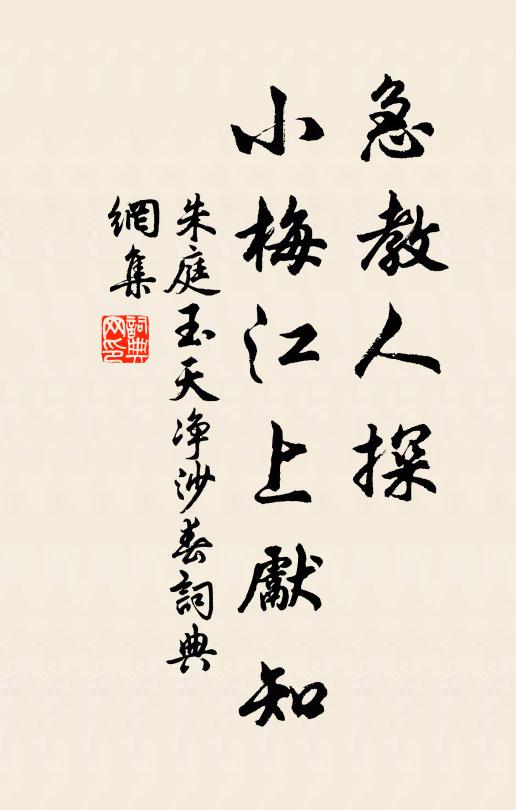 急教人探
小梅江上獻知
朱庭玉天净沙春詞典
網集
詞典网印